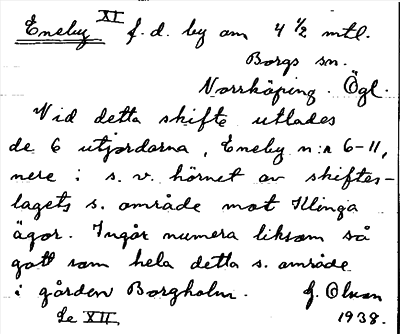 Eneby XI f. d. by om 4 ½ mtl.
Borgs sn.
Norrköping. Ögl.
Vid detta skifte utlades
de 6 utjordarna, Eneby n:a 6-11,
nere i s. v. hörnet av skiftes-
lagets s. område mot Klinga
ägor. Ingår numera liksom så
gott som hela detta s. område
i gården Borgholm. J. Olson
Se XII. 1938.